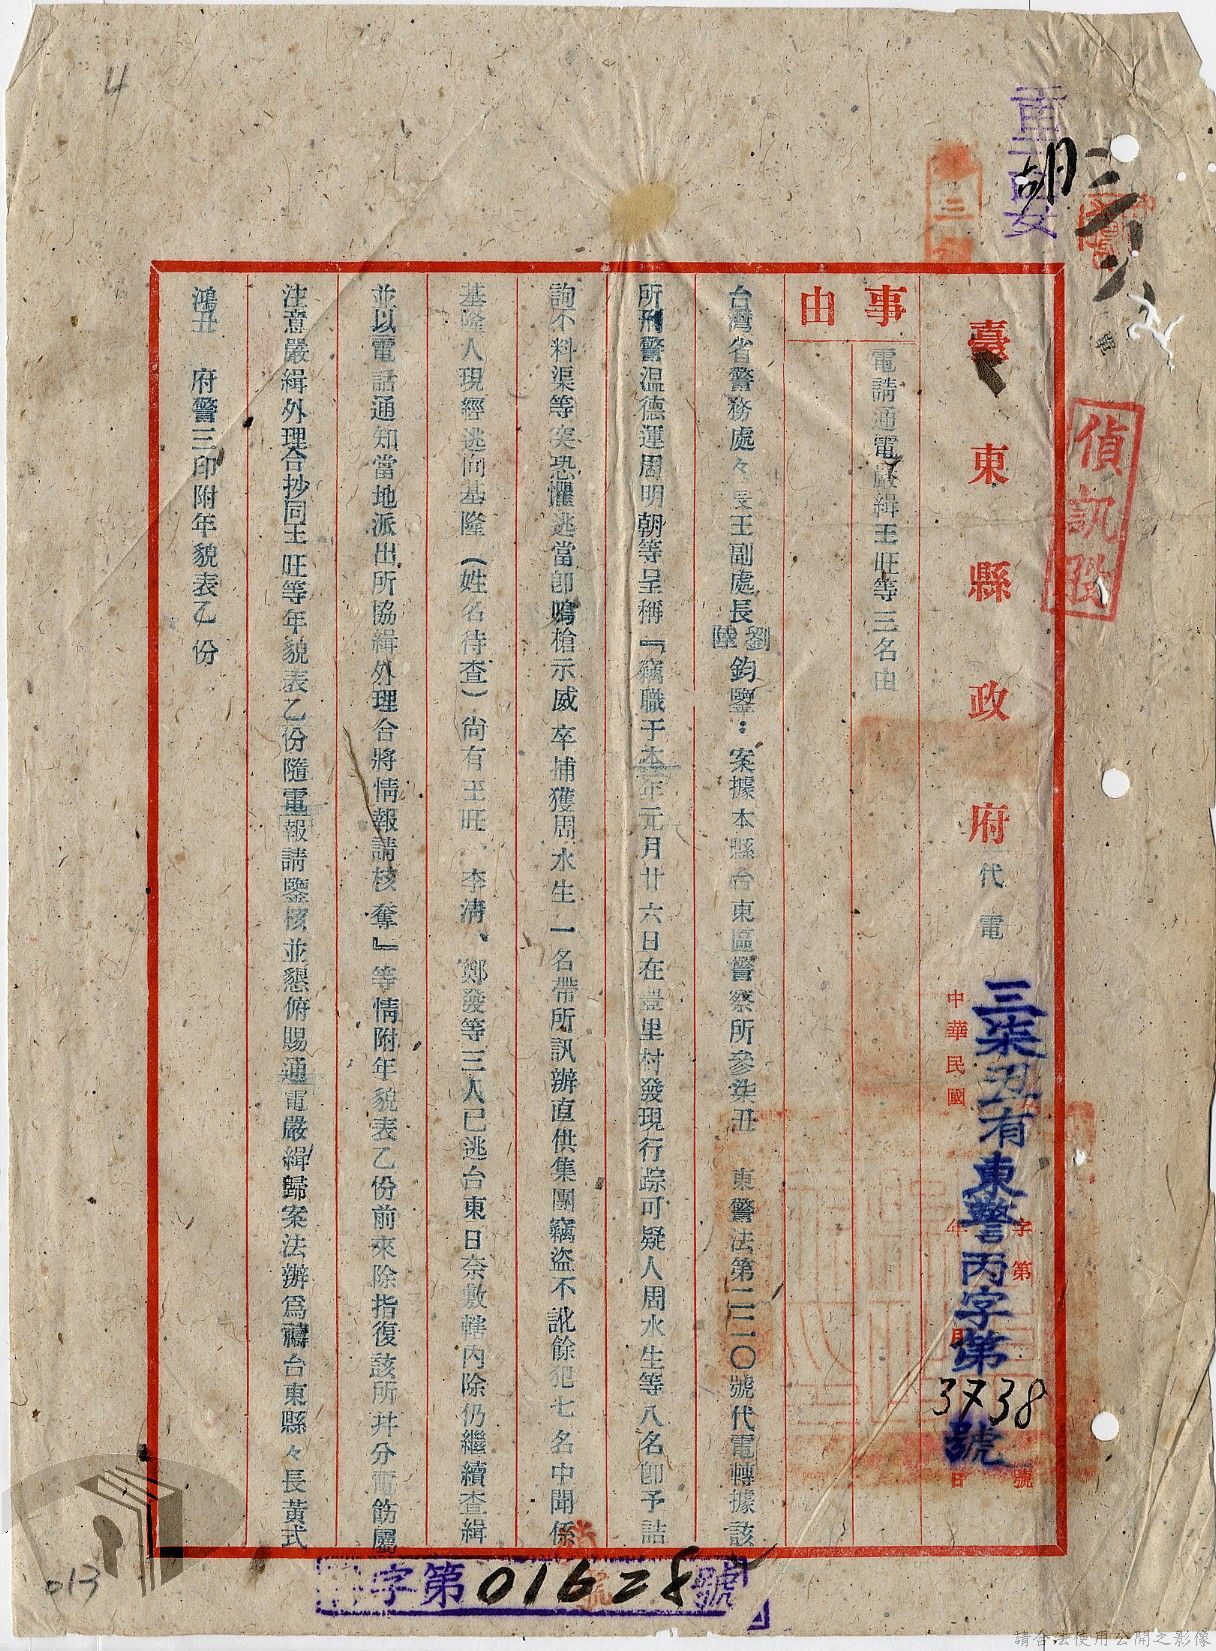 4
重要
胡
三
偵訊
臺東縣政府代電
三柒丑有東警丙字第3738號
中華民國 年 月 日
字第 號
事由
電請通電嚴緝王旺等三名由
台灣省警務處々長王副處長劉陸鈞鑒：案據本縣台東區警察所參柒丑 東警法第二二一〇號代電轉據該
所刑警温德運周明朝等呈稱『竊職于本年元月廿六日在豊里村發現行踪可疑人周水生等八名卽予詰
詢不料渠等突恐懼逃當卽鳴槍示威卒捕獲周水生一名帶所訊辦直供集團竊盜不訛餘犯七名中聞係
基隆人現經逃向基隆（姓名待查）尙有王旺、李淸、鄭發等三人已逃台東日奈敷轄內除仍繼續查緝
並以電話通知當地派出所協緝外理合將情報請核奪』等情附年貌表乙份前來除指復該所幷分電筋屬
注意嚴緝外理合抄同王旺等年貌表乙份隨電報請鑒核並懇俯賜通電嚴緝歸案法辦爲禱台東縣々長黃式
鴻丑 府警三印附年貌表乙份
字第01628號
013
請合法使用公開之影像